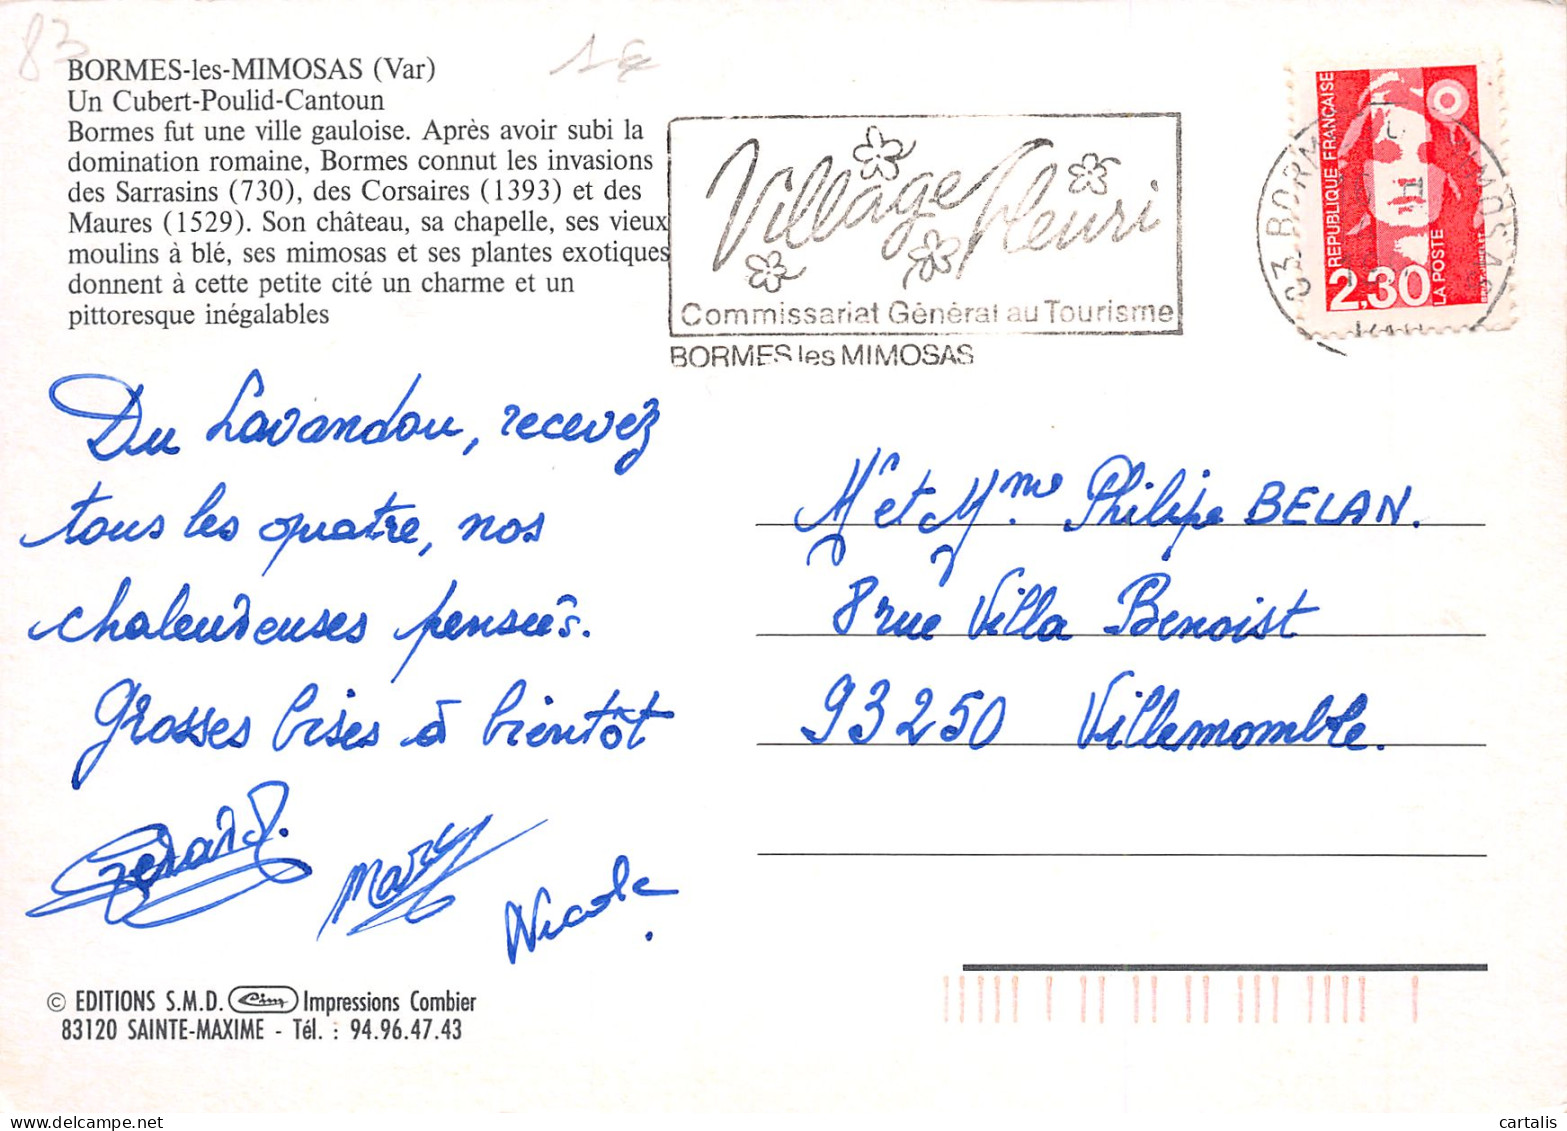 83
1€
BORMES-les-MIMOSAS (Var)
Un Cubert-Poulid-Cantoun
Bormes fut une ville gauloise. Après avoir subi la
domination romaine, Bormes connut les invasions
des Sarrasins (730), des Corsaires (1393) et des
Maures (1529). Son château, sa chapelle, ses vieux
moulins à blé, ses mimosas et ses plantes exotiques
donnent à cette petite cité un charme et un
pittoresque inégalables
Village fleuri
Commissariat Général au Tourisme
BORMES les MIMOSAS
REPUBLIQUE FRANÇAISE
2,30
LA POSTE
Du Lavandou, recevez
tous les quatre, nos
chaleureuses pensées.
Grosses bises à bientôt
Gérard.
Mary
Nicole
Mr et Mme Philipe BELAN.
8 rue Villa Benoist
93250 Villemomble.
© EDITIONS S.M.D. Cim Impressions Combier
83120 SAINTE-MAXIME - Tél. : 94.96.47.43
cartalis